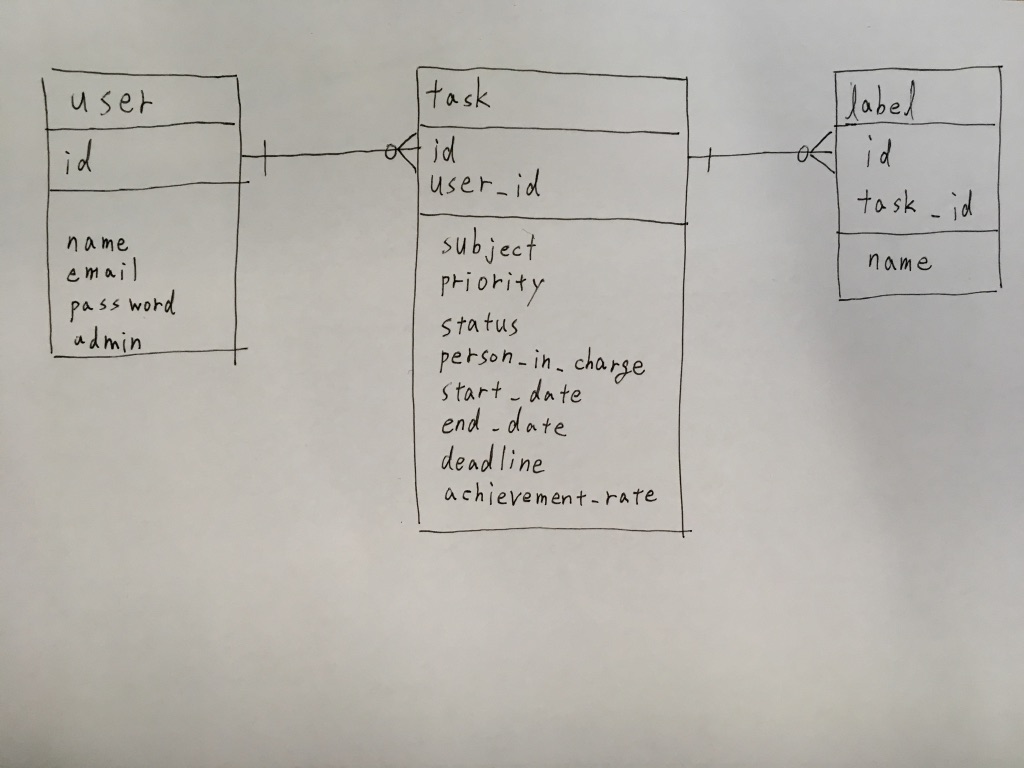 user
id
name
email
password
admin
task
id
user_id
subject
priority
status
person_in_charge
start_date
end_date
deadline
achievement_rate
label
id
task_id
name